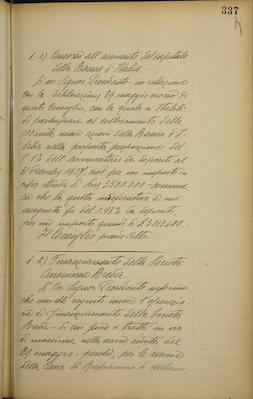 337
1. a) Concorso all'aumento del capitale
della Banca d'Italia
L'On. Signor Presidente - in relazione
con la deliberazione 29 maggio u.s. di
questo Consiglio, con la quale si stabilì
di partecipare al collocamento delle
100 mila nuove azioni della Banca d'I-
talia nella proporzione del
dell'ammontare dei depositi al
31 dicembre 1927, cioè per un importo in
cifra tonda di Lire 2.500.000 - comuni-
ca che la quota a noi
assegnata fu del 1.952 %
per un importo quindi di £
Il Consiglio prende atto.
1. b) Finanziamento della Società
Anonima Breda.
L'On. Signor Presidente informa
che non ha seguito invece l'operazio-
ne di finanziamento della Società
Breda - di cui pure si trattò in via
di massima nella seduta del
29 maggio - perché, per le norme
della Cassa di Risparmio di Milano,